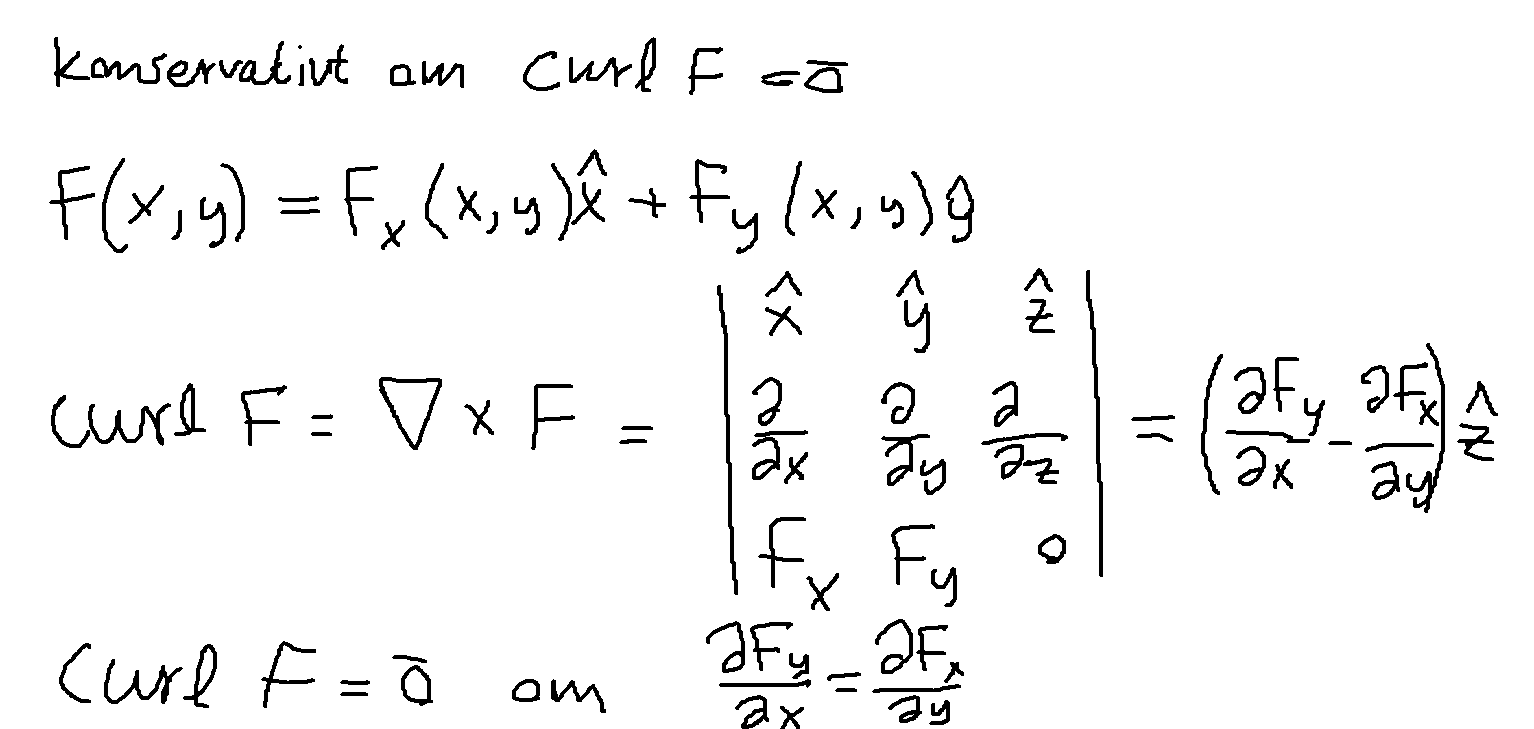 Konservativt om Curl F = 0̄
F(x,y) = Fₓ(x,y)x̂ + F_y(x,y)ŷ
Curl F = ∇ × F = | x̂ ŷ ẑ ; ∂/∂x ∂/∂y ∂/∂z ; Fₓ F_y 0 | = (∂F_y/∂x - ∂Fₓ/∂y)ẑ
Curl F = 0̄ om ∂F_y/∂x = ∂Fₓ/∂y